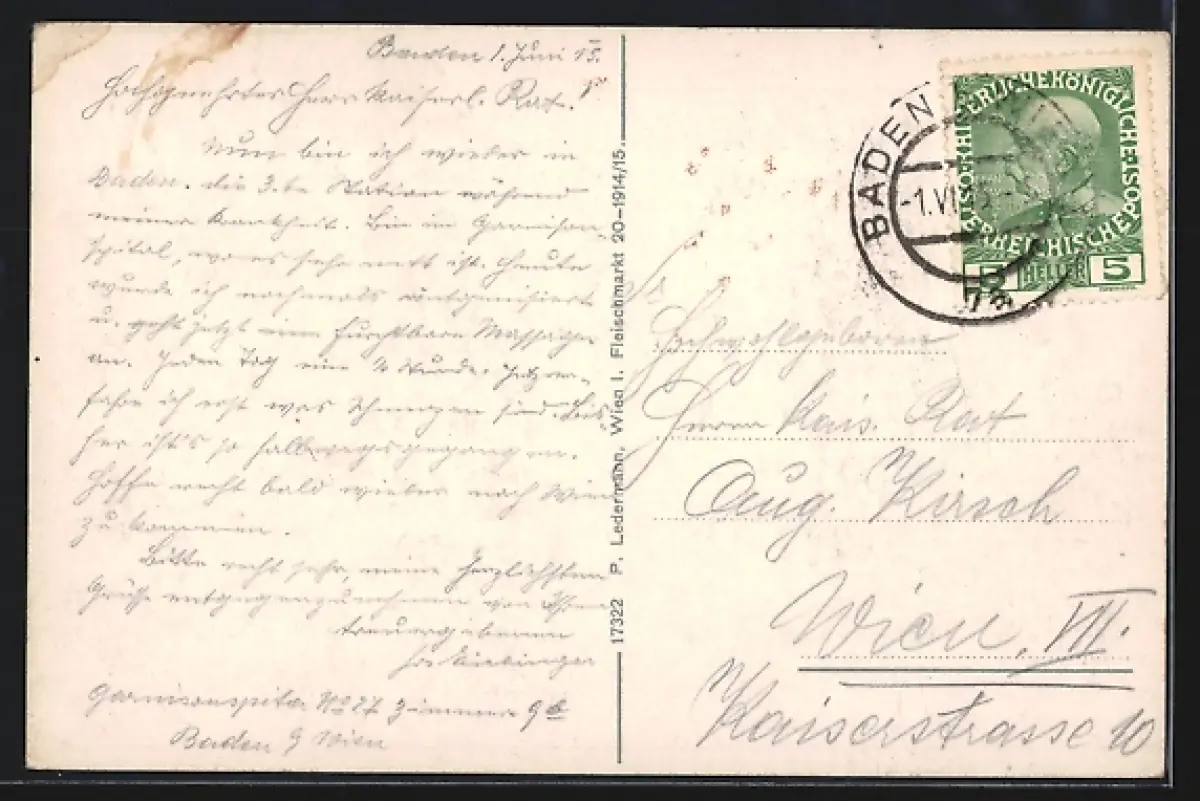 Baden 1. Juni 15.
Hochgeehrter Herr Kaiserl. Rat!
Nun bin ich wieder in
Baden. die 3.te Station während
meiner Krankheit. Bin im Garnison-
spital, wo es sehr nett ist. Heute
wurde ich nochmals röntgenisiert
u. geht jetzt eine furchtbare Massage
an. Jeden Tag eine ½ Stunde. Jetzt er-
fahre ich erst was Schmerzen sind. Bis-
her ist's so halbwegs gegangen.
Hoffe recht bald wieder nach Wien
zu kommen.
Bitte recht sehr, meine herzlichsten
Grüsse entgegenzunehmen von Ihrem
treuergebenen
Garnisonspital No 27 Zimmer 9
Baden b Wien
17322 P. Ledermann, Wien I. Fleischmarkt 20-1914/15.
BADEN
-1.VI.
KAISERLICHEKÖNIGLICHEPOST
ÖSTERREICHISCHEPOST
5 HELLER 5
Hochwohlgeboren
Herrn Kais. Rat
Aug. Kirsch
Wien, VII.
Kaiserstrasse 10